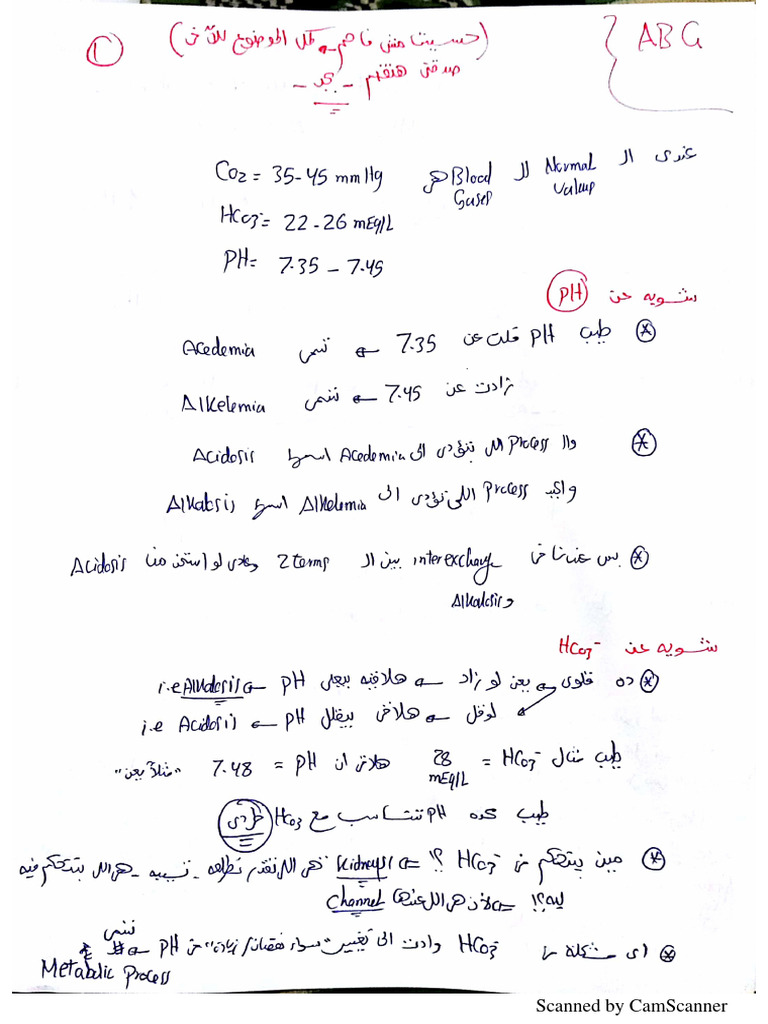 ABG
(حسيت مش فاهم ← كمل الموضوع للآخر)
صدقني هتفهم - بجد -
1
عندي الـ Normal Value للـ Blood Gases هي
CO2 = 35-45 mmHg
HCO3- = 22-26 mEq/L
PH = 7.35 - 7.45
شويه عن PH
طيب PH قلت عن 7.35 ← تسمى Acedemia
زادت عن 7.45 ← تسمى Alkelemia
والـ Process اللي بتؤدي الى Acedemia اسمها Acidosis
والـ Process اللي تؤدي الى Alkelemia اسمها Alkalosis
بس عندنا في interexchang بين الـ 2 terms وعادي لو استخدمنا Acidosis
و Alkalosis
شويه عن HCO3-
ده قلوي ← يعني لو زاد ← هلاقيه بيعلي PH ← i.e Alkalosis
لو قل ← هلاقي بيقلل PH ← i.e Acidosis
طيب مثال HCO3- = 28 mEq/L هلاقي ان PH = 7.48 "مثلاً يعني"
طيب كده PH تتناسب مع HCO3 طردي
مين يتحكم في HCO3- ؟! ← Kidneys هي اللي تقدر تطلعه - تسيبه - هي اللي بتتحكم فيه
ليه؟! ← لأن هي اللي عندها Channel
اي مشكلة في HCO3- وادت الى تغيير "سواء نقصان / زيادة" في PH ← تسمى
Metabolic Process
Scanned by CamScanner